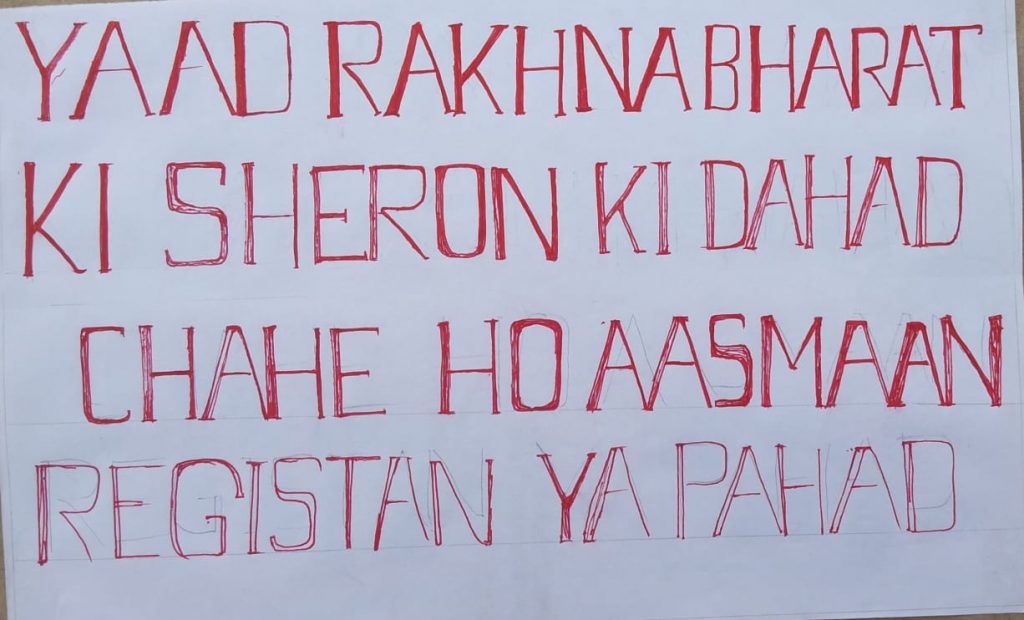 YAAD RAKHNA BHARAT
KI SHERON KI DAHAD
CHAHE HO AASMAAN
REGISTAN YA PAHAD